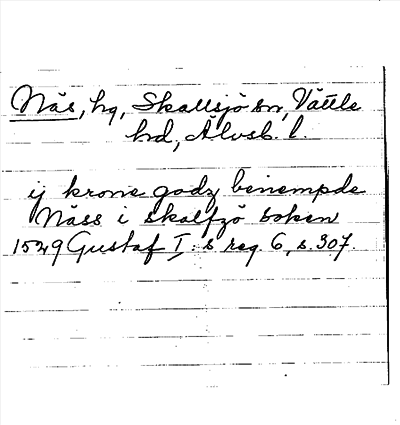 Näs, hg, Skallsjö sn, Vättle
hd, Älvsb. l.
ij krone godz benempde
Näss i skalfzö soken
1529 Gustaf I:s reg. 6, s. 307.